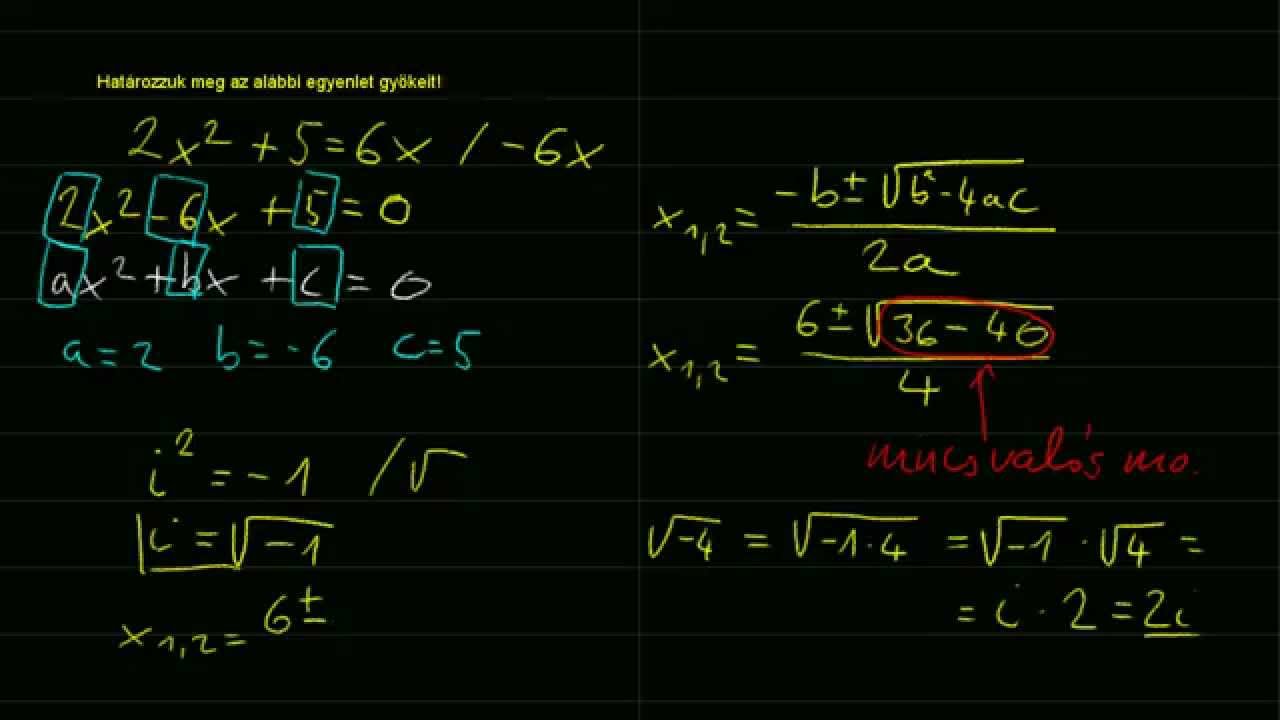 Határozzuk meg az alábbi egyenlet gyökeit!
2x² + 5 = 6x / -6x
2x² - 6x + 5 = 0
ax² + bx + c = 0
a = 2 b = -6 c = 5
i² = -1 /√
i = √-1
x₁,₂ = 6 ±
x₁,₂ = (-b ± √(b² - 4ac)) / 2a
x₁,₂ = (6 ± √(36 - 40)) / 4
nincs valós mo.
√-4 = √-1·4 = √-1 · √4 =
= i · 2 = 2i